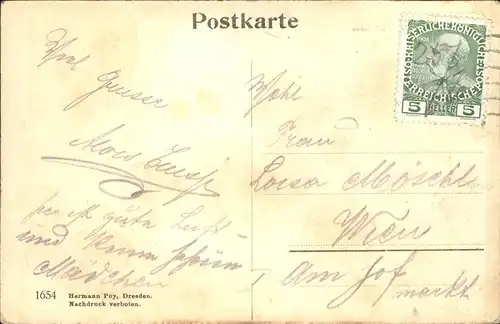 Postkarte
Viel
Grüsse
Alois
hier ist gute Luft
und keine schönen
Mädchen
1654
Hermann Poy, Dresden.
Nachdruck verboten.
KAISERLICHE KÖNIGLICHE
ÖSTERREICHISCHE POST
5 HELLER 5
Wohl
Frau
Luisa Möschl
Wien
Am Hof
markt